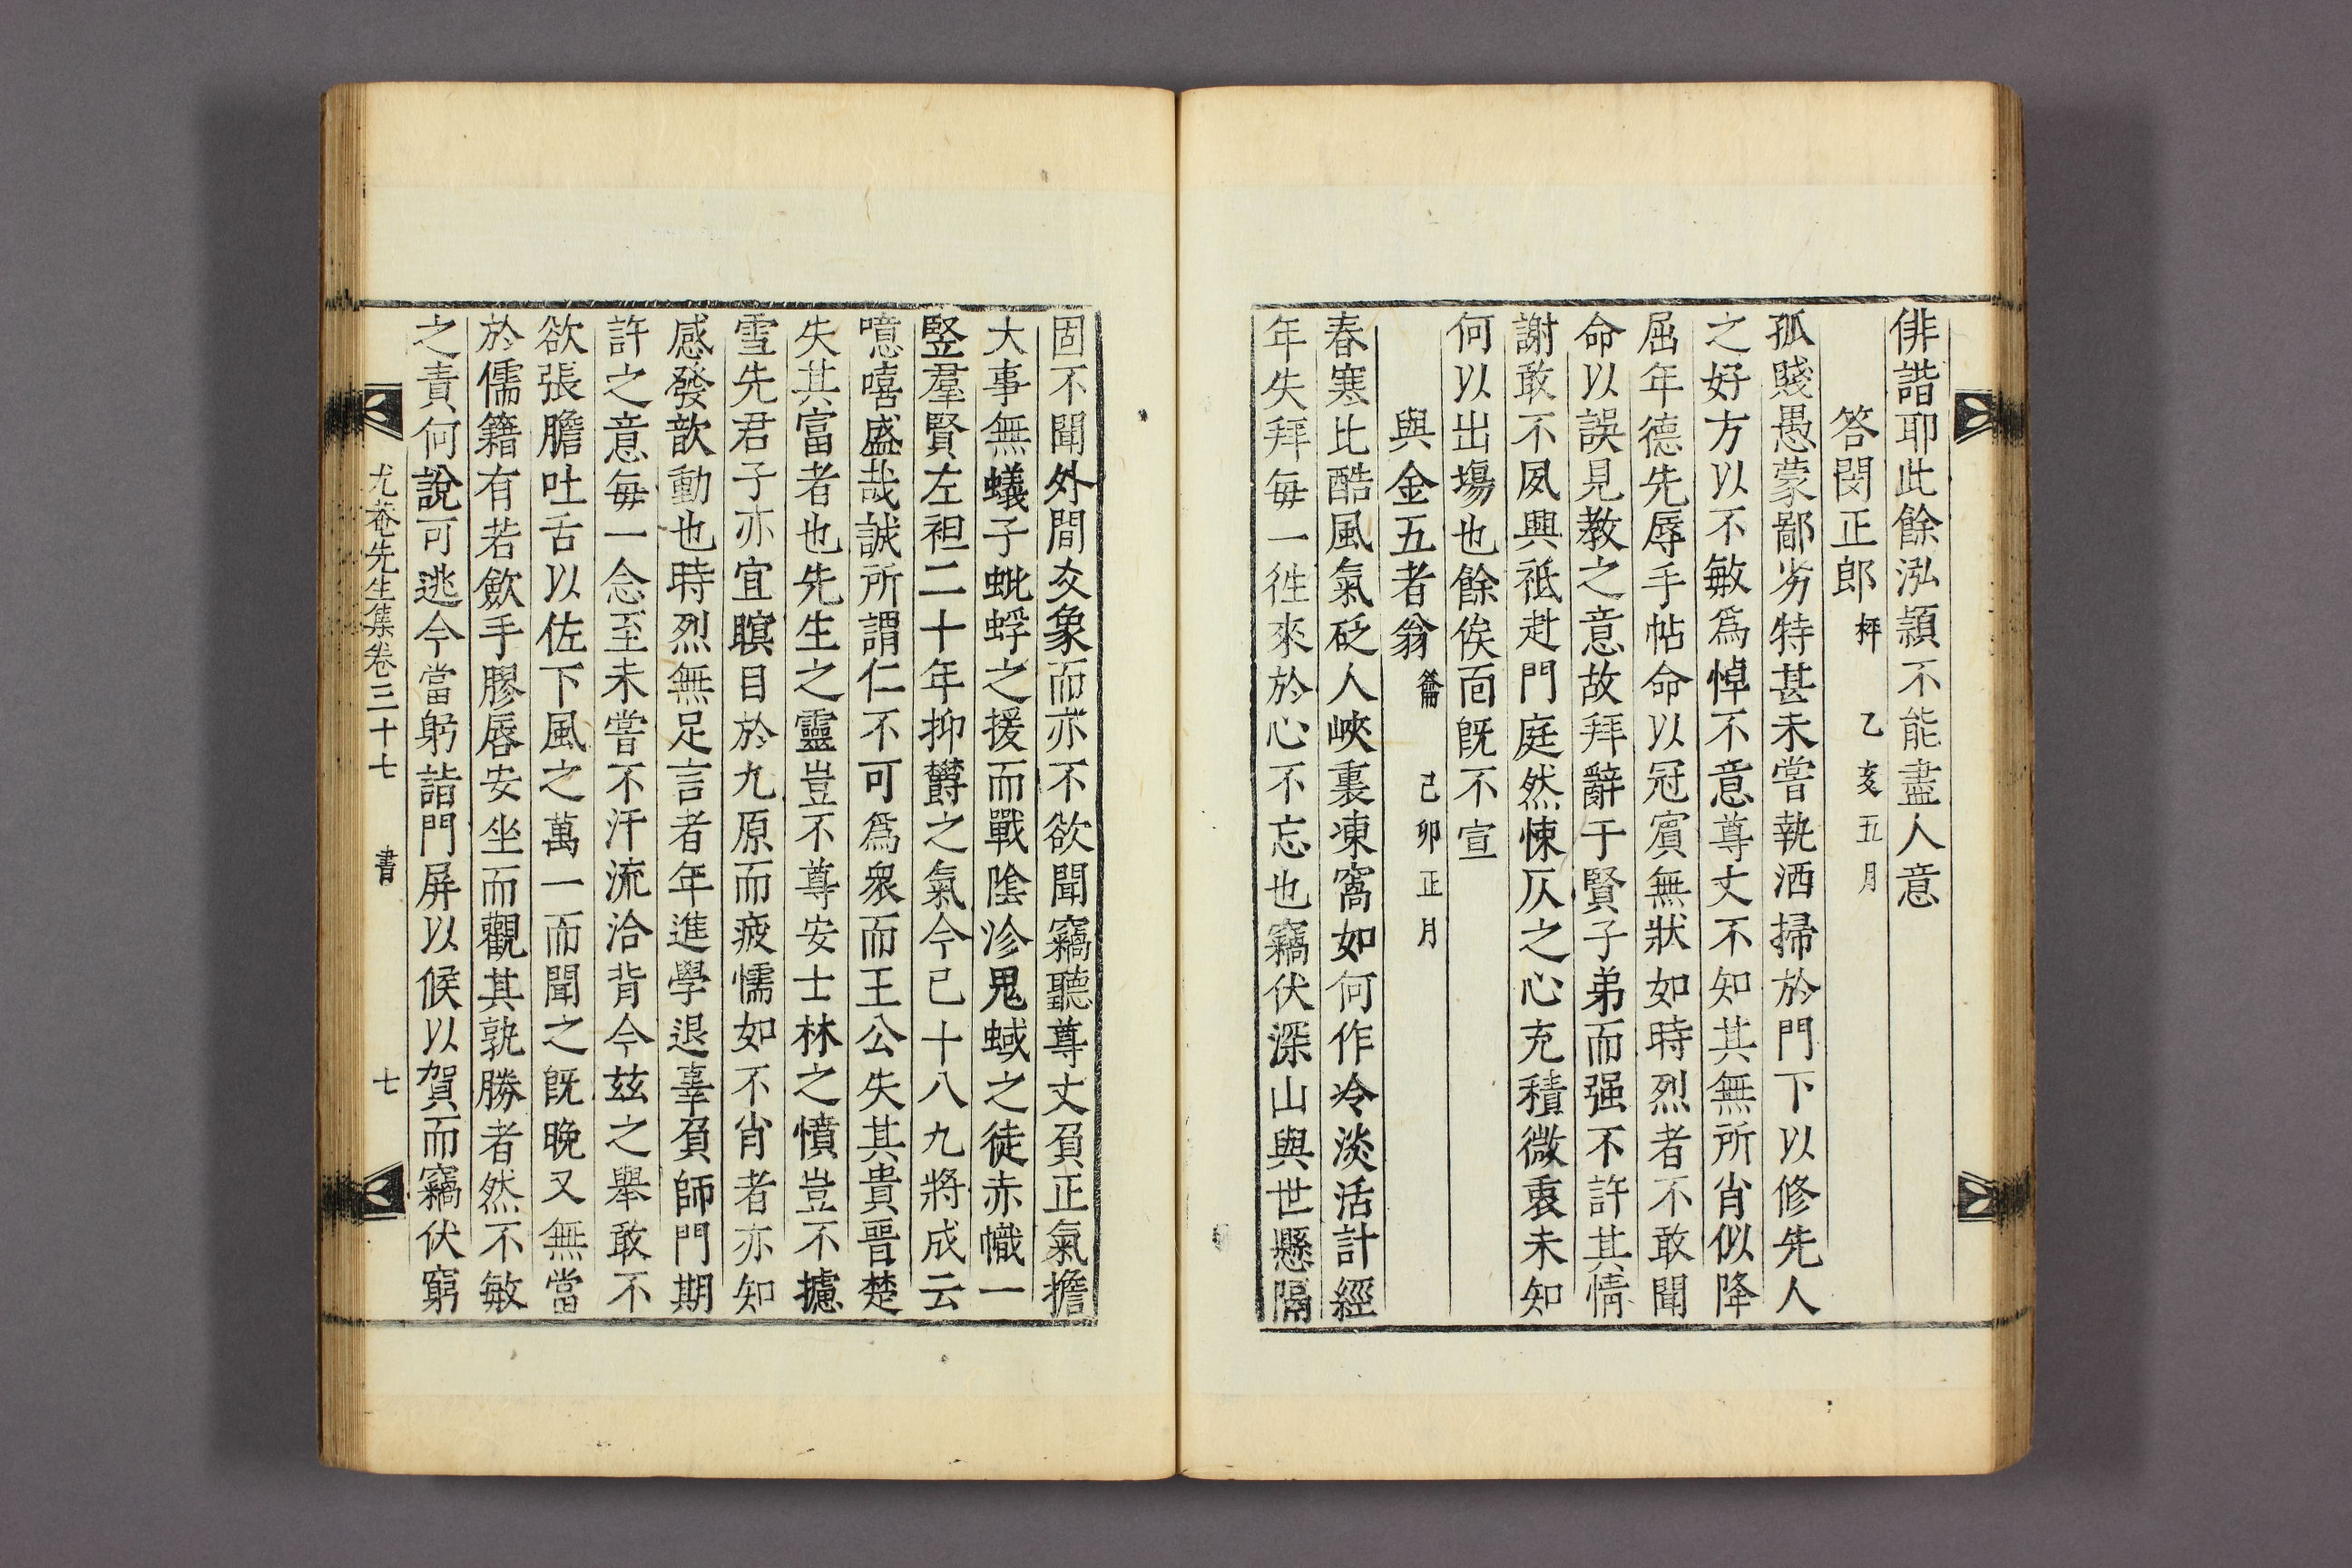 俳諧耶此餘泓穎不能盡人意
答閔正郎 枰 乙亥五月
孤賤愚蒙鄙劣特甚未嘗執洒掃於門下以修先人
之好方以不敏爲悼不意尊丈不知其無所肖似降
屈年德先辱手帖命以冠賓無狀如時烈者不敢聞
命以誤見教之意故拜辭于賢子弟而强不許其情
謝敢不夙興祗赴門庭然悚仄之心充積微衷未知
何以出場也餘俟面旣不宣
與金五者翁 己卯正月
春寒比酷風氣砭人峽裏凍窩如何作冷淡活計經
年失拜每一徃來於心不忘也竊伏深山與世懸隔
固不聞外間爻象而亦不欲聞竊聽尊丈負正氣擔
大事無蟻子蚍蜉之援而戰陰沴鬼蜮之徒赤幟一
竪羣賢左袒二十年抑欝之氣今已十八九將成云
噫嘻盛哉誠所謂仁不可爲衆而王公失其貴晋楚
失其富者也先生之靈豈不尊安士林之憤豈不攄
雪先君子亦宜瞑目於九原而疲懦如不肖者亦知
感發歆動也時烈無足言者年進學退辜負師門期
許之意每一念至未嘗不汗流洽背今玆之擧敢不
欲張膽吐舌以佐下風之萬一而聞之旣晚又無當
於儒籍有若歛手膠唇安坐而觀其孰勝者然不敏
之責何說可逃今當躬詣門屏以候以賀而竊伏窮
尤菴先生集卷三十七 書 七